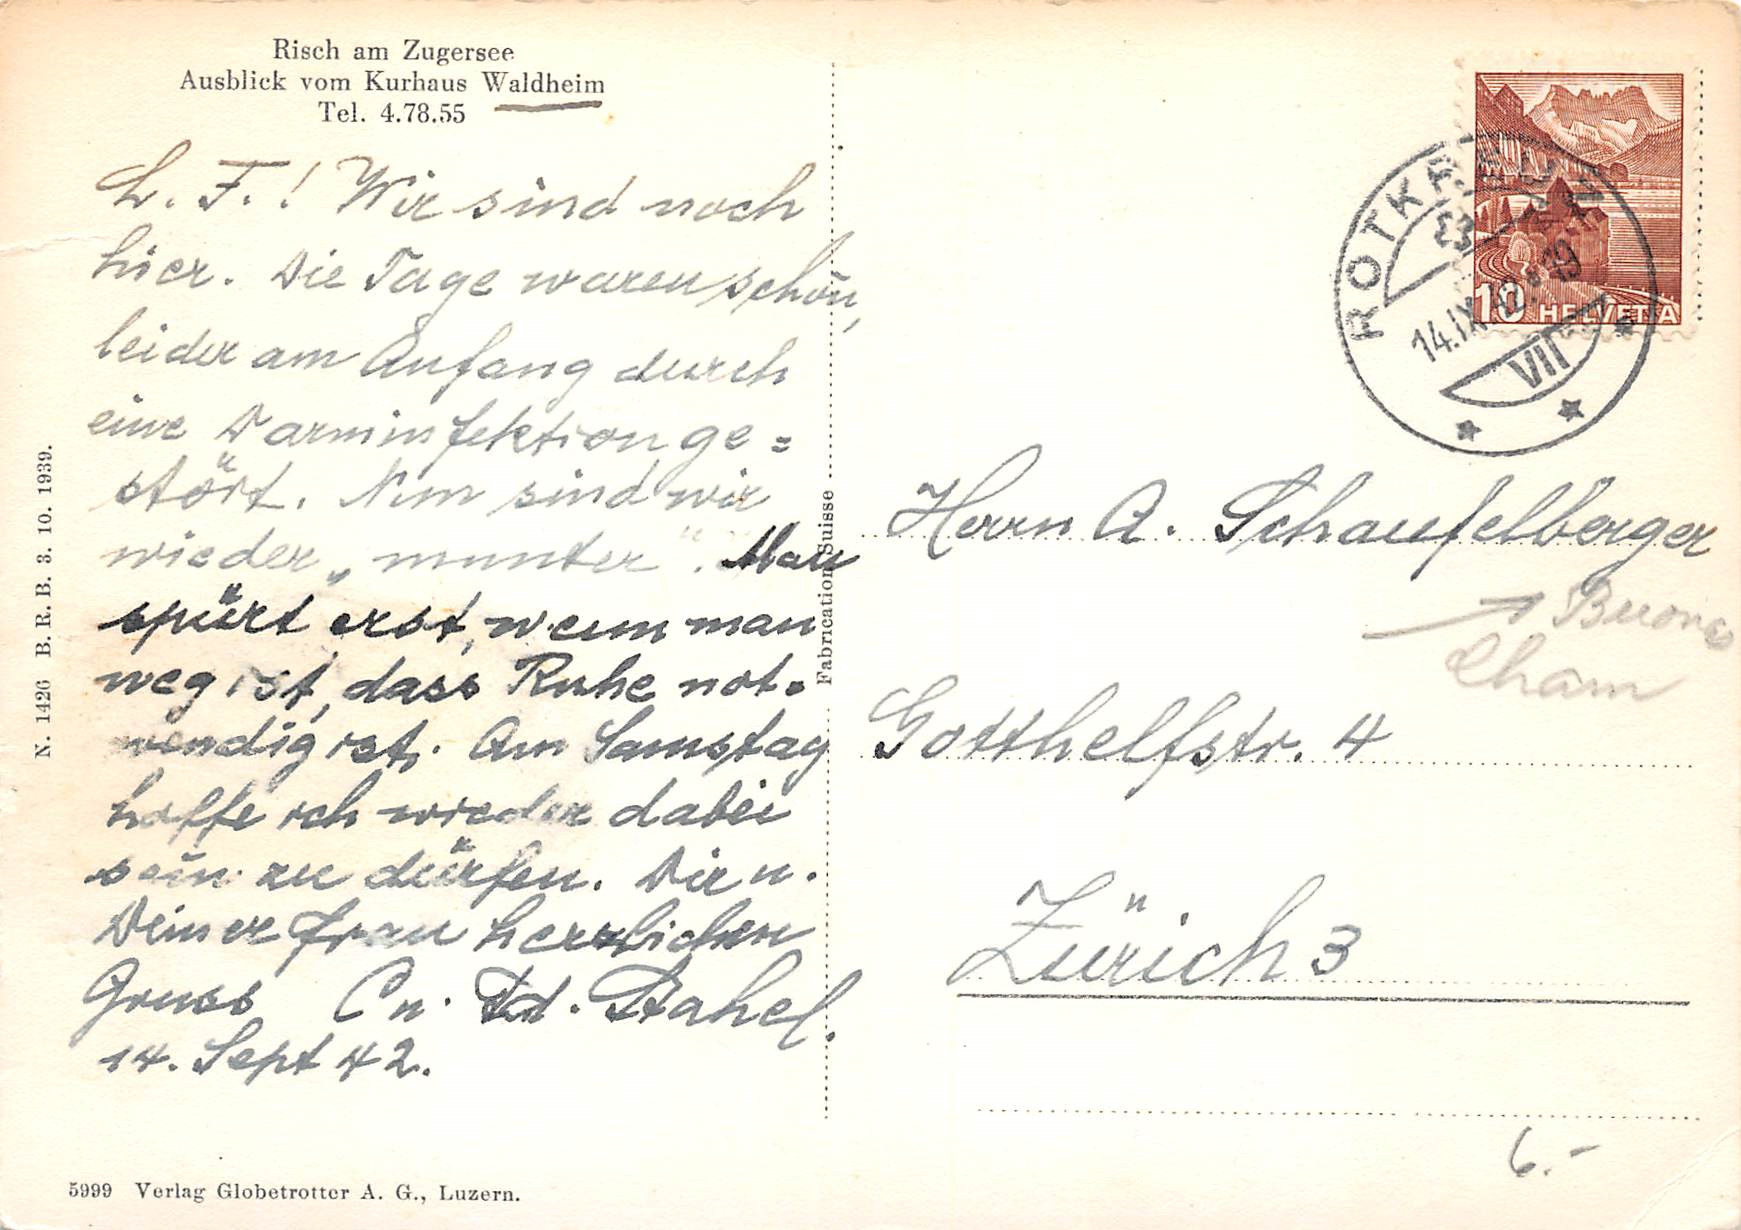 Risch am Zugersee
Ausblick vom Kurhaus Waldheim
Tel. 4.78.55
L. F.! Wir sind noch
hier. Die Tage waren schön,
leider am Anfang durch
eine Darminfektion ge=
stört. Nun sind wir
wieder „munter". Man
spürt erst, wenn man
weg ist, dass Ruhe not-
wendig ist. Am Samstag
hoffe ich wieder dabei
sein zu dürfen. Dir u.
Deiner Frau herzlichen
Gruss
Stahel.
14. Sept 42.
N. 1426 B. R. B. 3. 10. 1939.
5999 Verlag Globetrotter A. G., Luzern.
Fabrication Suisse
ROTKREUZ
14.IX.42.-19
VII
10 HELVETIA
Herrn A. Schaufelberger
Cham
Gotthelfstr. 4
Zürich 3
6.-